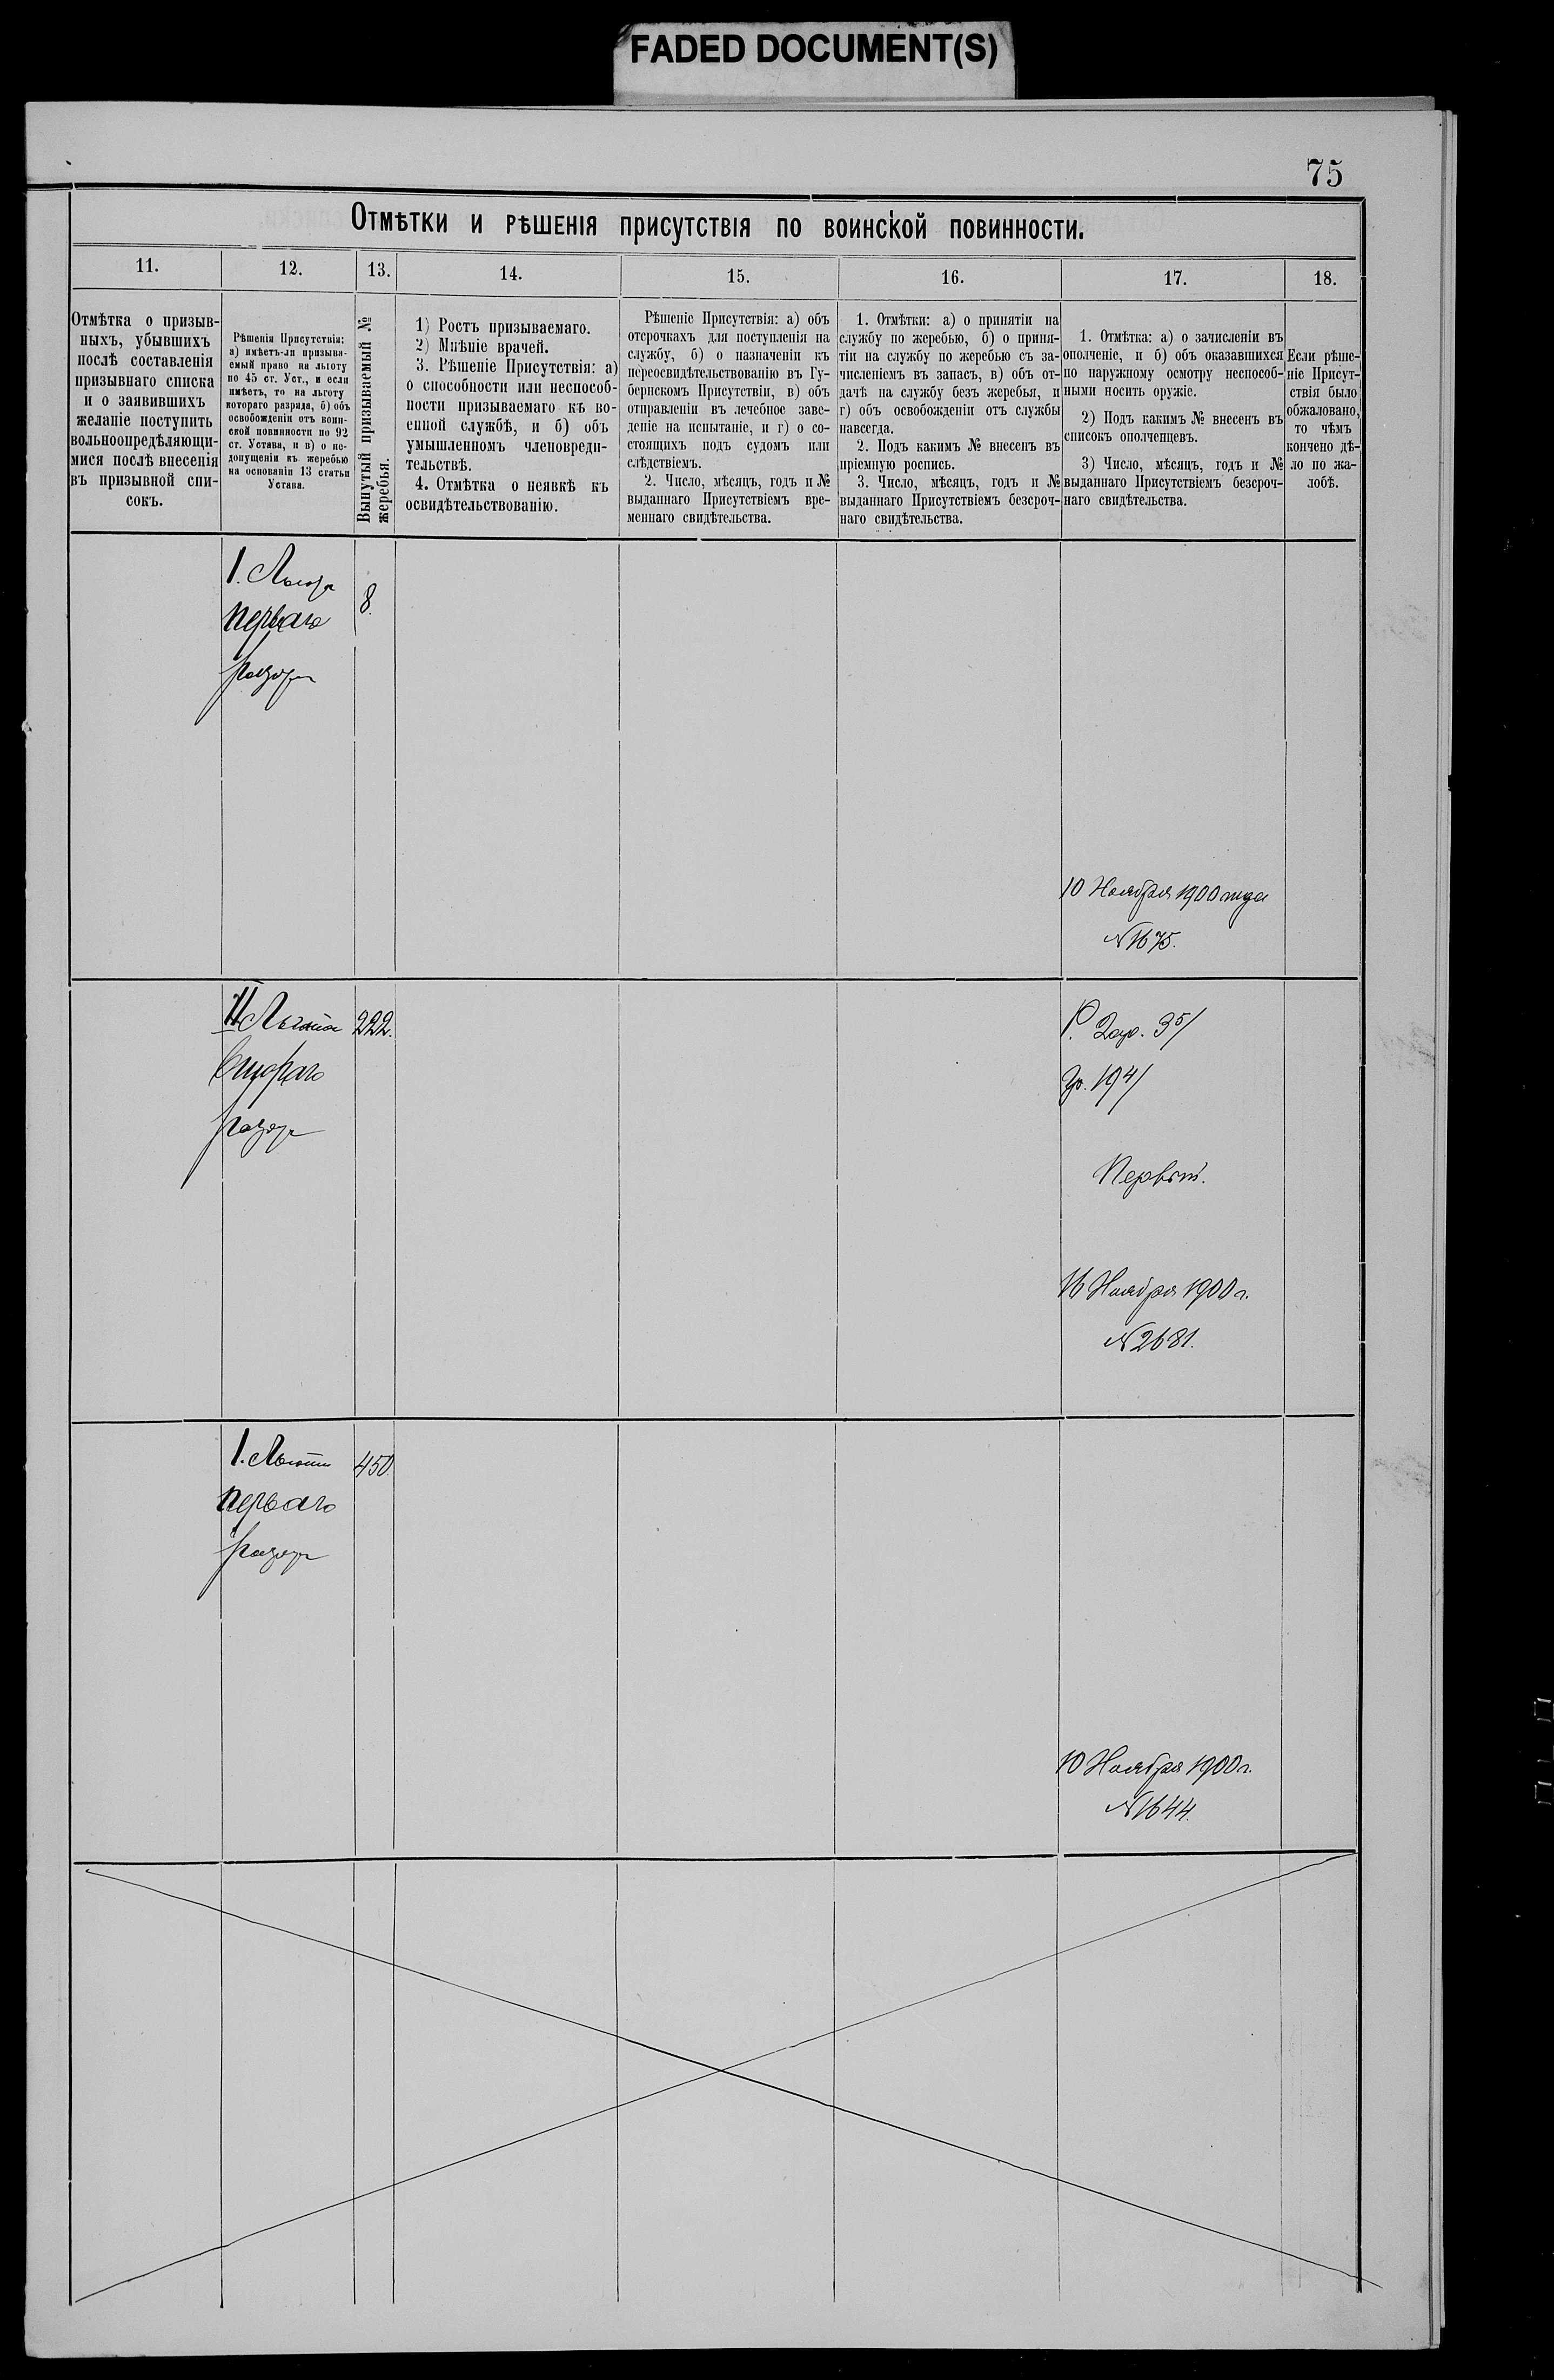 FADED DOCUMENT(S)
75
Отмѣтки и рѣшенія присутствія по воинской повинности.
11.
12.
13.
14.
15.
16.
17.
18.
Отмѣтка о призыв-
ныхъ, убывшихъ
послѣ составленія
призывнаго списка
и о заявившихъ
желаніе поступить
вольноопредѣляющи-
мися послѣ внесенія
въ призывной спи-
сокъ.
Рѣшенія Присутствія:
а) имѣетъ-ли призыва-
емый право на льготу
по 45 ст. Уст., и если
имѣетъ, то на льготу
котораго разряда, б) объ
освобожденіи отъ воин-
ской повинности по 92
ст. Устава, и в) о не-
допущеніи къ жеребью
на основаніи 13 статьи
Устава.
Вынутый призываемый №
жеребья.
1) Ростъ призываемаго.
2) Мнѣніе врачей.
3. Рѣшеніе Присутствія: а)
о способности или неспособ-
ности призываемаго къ во-
енной службѣ, и б) объ
умышленномъ членовреди-
тельствѣ.
4. Отмѣтка о неявкѣ къ
освидѣтельствованію.
Рѣшеніе Присутствія: а) объ
отсрочкахъ для поступленія на
службу, б) о назначеніи къ
переосвидѣтельствованію въ Гу-
бернскомъ Присутствіи, в) объ
отправленіи въ лечебное заве-
деніе на испытаніе, и г) о со-
стоящихъ подъ судомъ или
слѣдствіемъ.
2. Число, мѣсяцъ, годъ и №
выданнаго Присутствіемъ вре-
меннаго свидѣтельства.
1. Отмѣтки: а) о принятіи на
службу по жеребью, б) о приня-
тіи на службу по жеребью съ за-
численіемъ въ запасъ, в) объ от-
дачѣ на службу безъ жеребья, и
г) объ освобожденіи отъ службы
навсегда.
2. Подъ какимъ № внесенъ въ
пріемную роспись.
3. Число, мѣсяцъ, годъ и №
выданнаго Присутствіемъ безсроч-
наго свидѣтельства.
1. Отмѣтка: а) о зачисленіи въ
ополченіе, и б) объ оказавшихся
по наружному осмотру неспособ-
ными носить оружіе.
2) Подъ какимъ № внесенъ въ
списокъ ополченцевъ.
3) Число, мѣсяцъ, годъ и №
выданнаго Присутствіемъ безсроч-
наго свидѣтельства.
Если рѣше-
ніе Присут-
ствія было
обжаловано,
то чѣмъ
кончено дѣ-
ло по жа-
лобѣ.
I.
перваго
8.
10 Ноября 1900 года
N 1675.
II Льгота
второго
222.
Первый.
16 Ноября 1900 г.
N 2681.
I. Льготы
перваго
450
10 Ноября 1900 г.
N 1644.